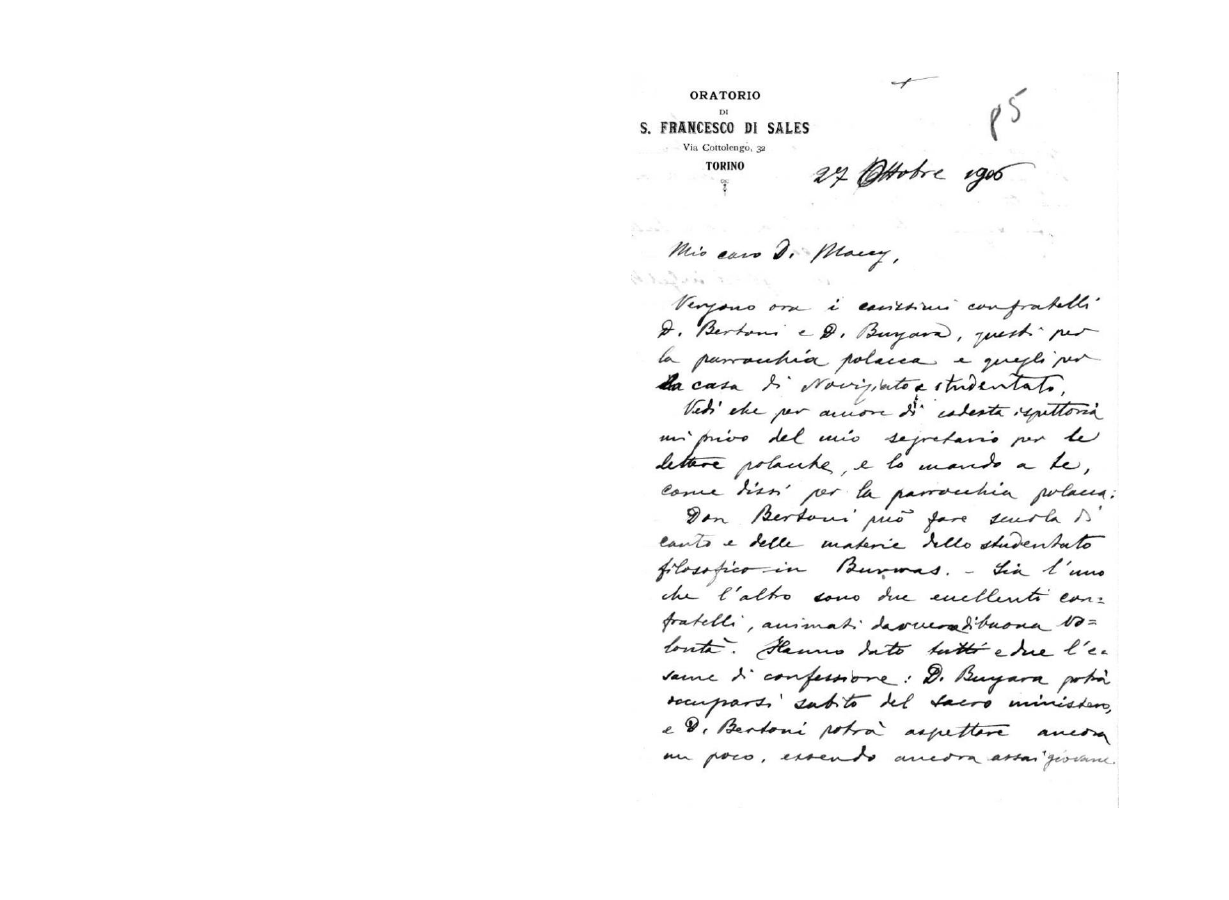 ORATORIO
DI
S. FRANCESCO DI SALES
Via Cottolengo, 32
TORINO
p5
27 Ottobre 1906
Mio caro D. Macey,
Vengono ora i carissimi confratelli
D. Bertoni e D. Buyara, questi per
la parrocchia polacca e quegli per
la casa di Noviziato e studentato.
Vedi che per amore di codesta ispettoria
mi privo del mio segretario per le
lettere polacche, e lo mando a te,
come dissi per la parrocchia polacca.
Don Bertoni può fare scuola di
canto e delle materie dello studentato
filosofico in Burwas. - Sia l'uno
che l'altro sono due eccellenti con=
fratelli, animati davvero di buona vo=
lontà. Hanno dato tutti e due l'e-
same di confessione: D. Buyara potrà
occuparsi subito del sacro ministero,
e D. Bertoni potrà aspettare ancora
un poco, essendo ancora assai giovane.